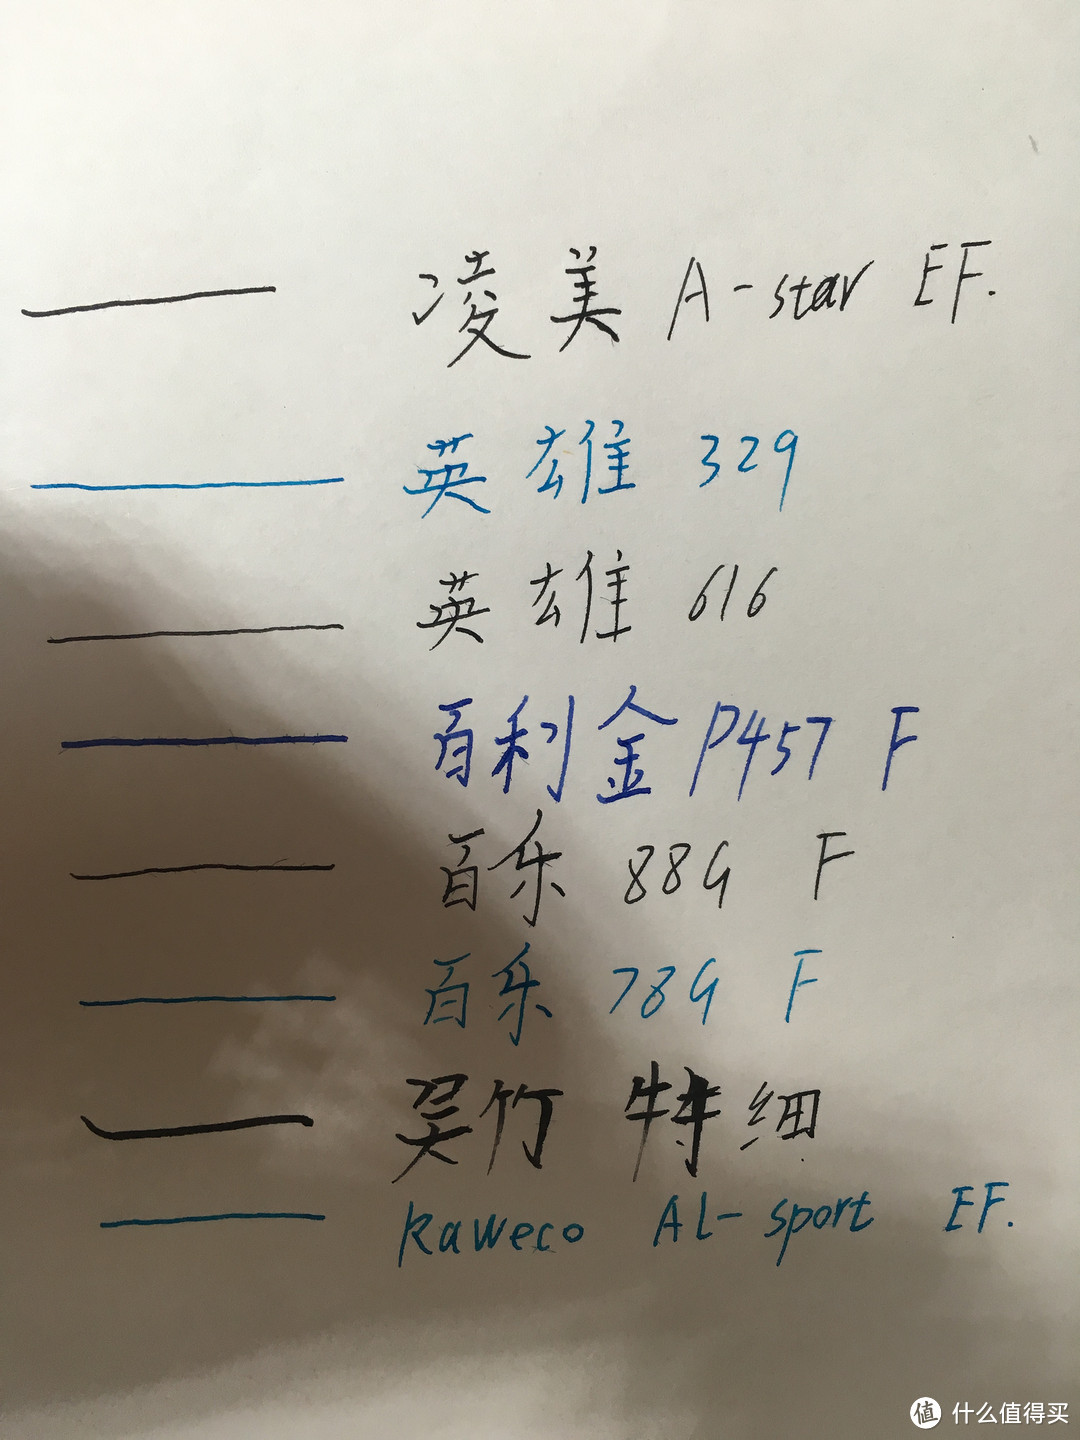 凌美 A-star EF.
英雄 329
英雄 616
百利金 P457 F
百乐 88G F
百乐 78G F
吴竹 特细
Kaweco AL-sport EF.
值 什么值得买